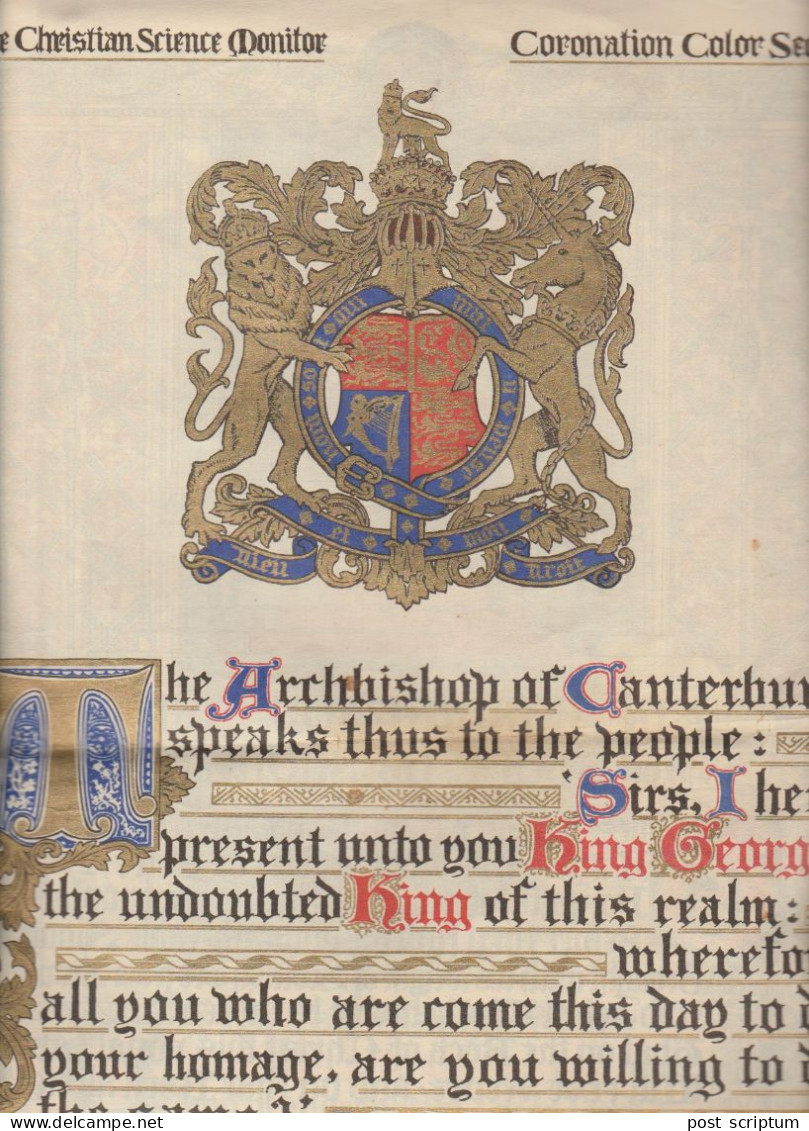 e Christian Science Monitor
Coronation Color Se
qui mal
soit
y pense
honi
et mon
Dieu
Droit
The Archbishop of Canterbur
speaks thus to the people:
'Sirs, I he
present unto you King Georg
the undoubted King of this realm:
wherefo
all you who are come this day to d
your homage, are you willing to d
the same?'
post scriptum